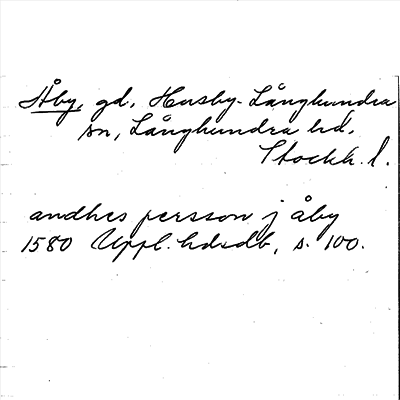 Åby, gd, Husby-Långhundra
sn, Långhundra hd,
Stockh. l.
andhes persson j åby
1580 Uppl. hdsdb, s. 100.